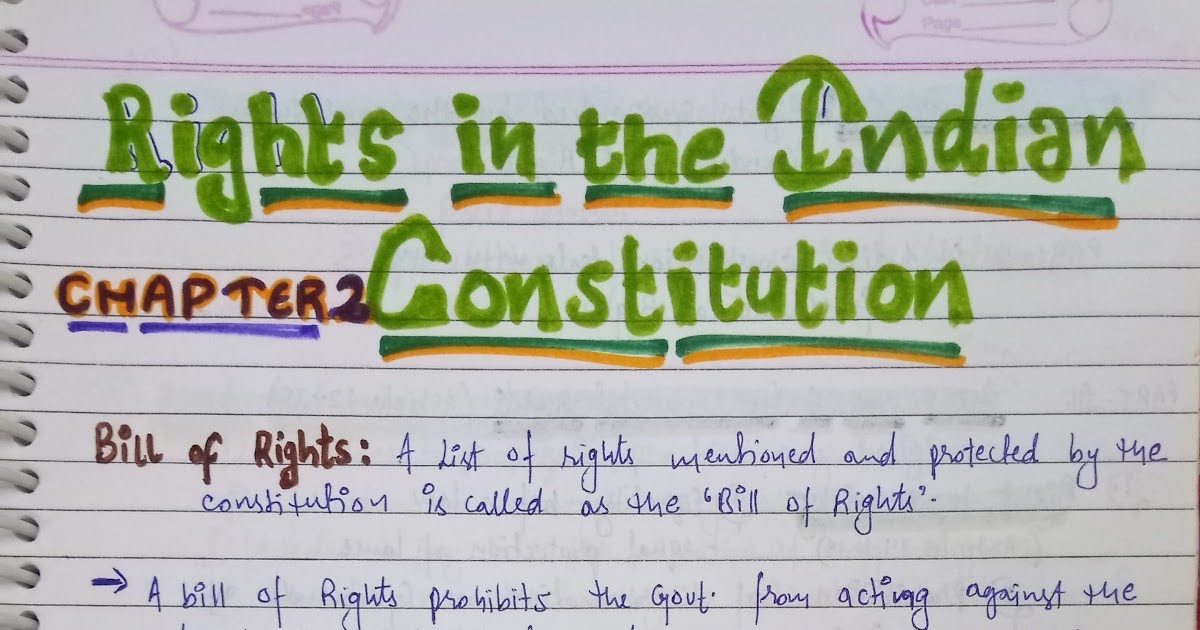 Page
Page
Rights in the Indian
CHAPTER 2 Constitution
Bill of Rights: A List of rights mentioned and protected by the
constitution is called as the 'Bill of Rights'.
→ A bill of Rights prohibits the Govt. from acting against the